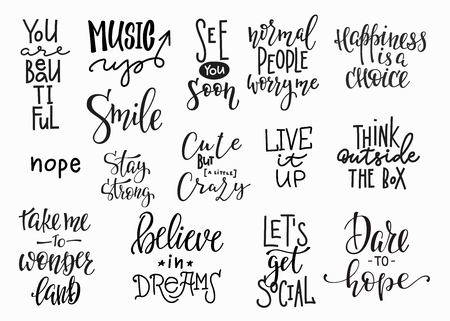 YOU
are
BEAU
TI
FUL
MUSIC
up
SEE
YOU
Soon
normal
PEOPLE
worry me
Happiness
is a
CHOICE
Smile
nope
Stay
Strong
Cute
BUT
[A LITTLE]
Crazy
LIVE
it
UP
THINK
outside
THE BOX
take me
TO
wonder
land
believe
in
DREAMS
LET'S
get
SOCIAL
Dare
TO
hope